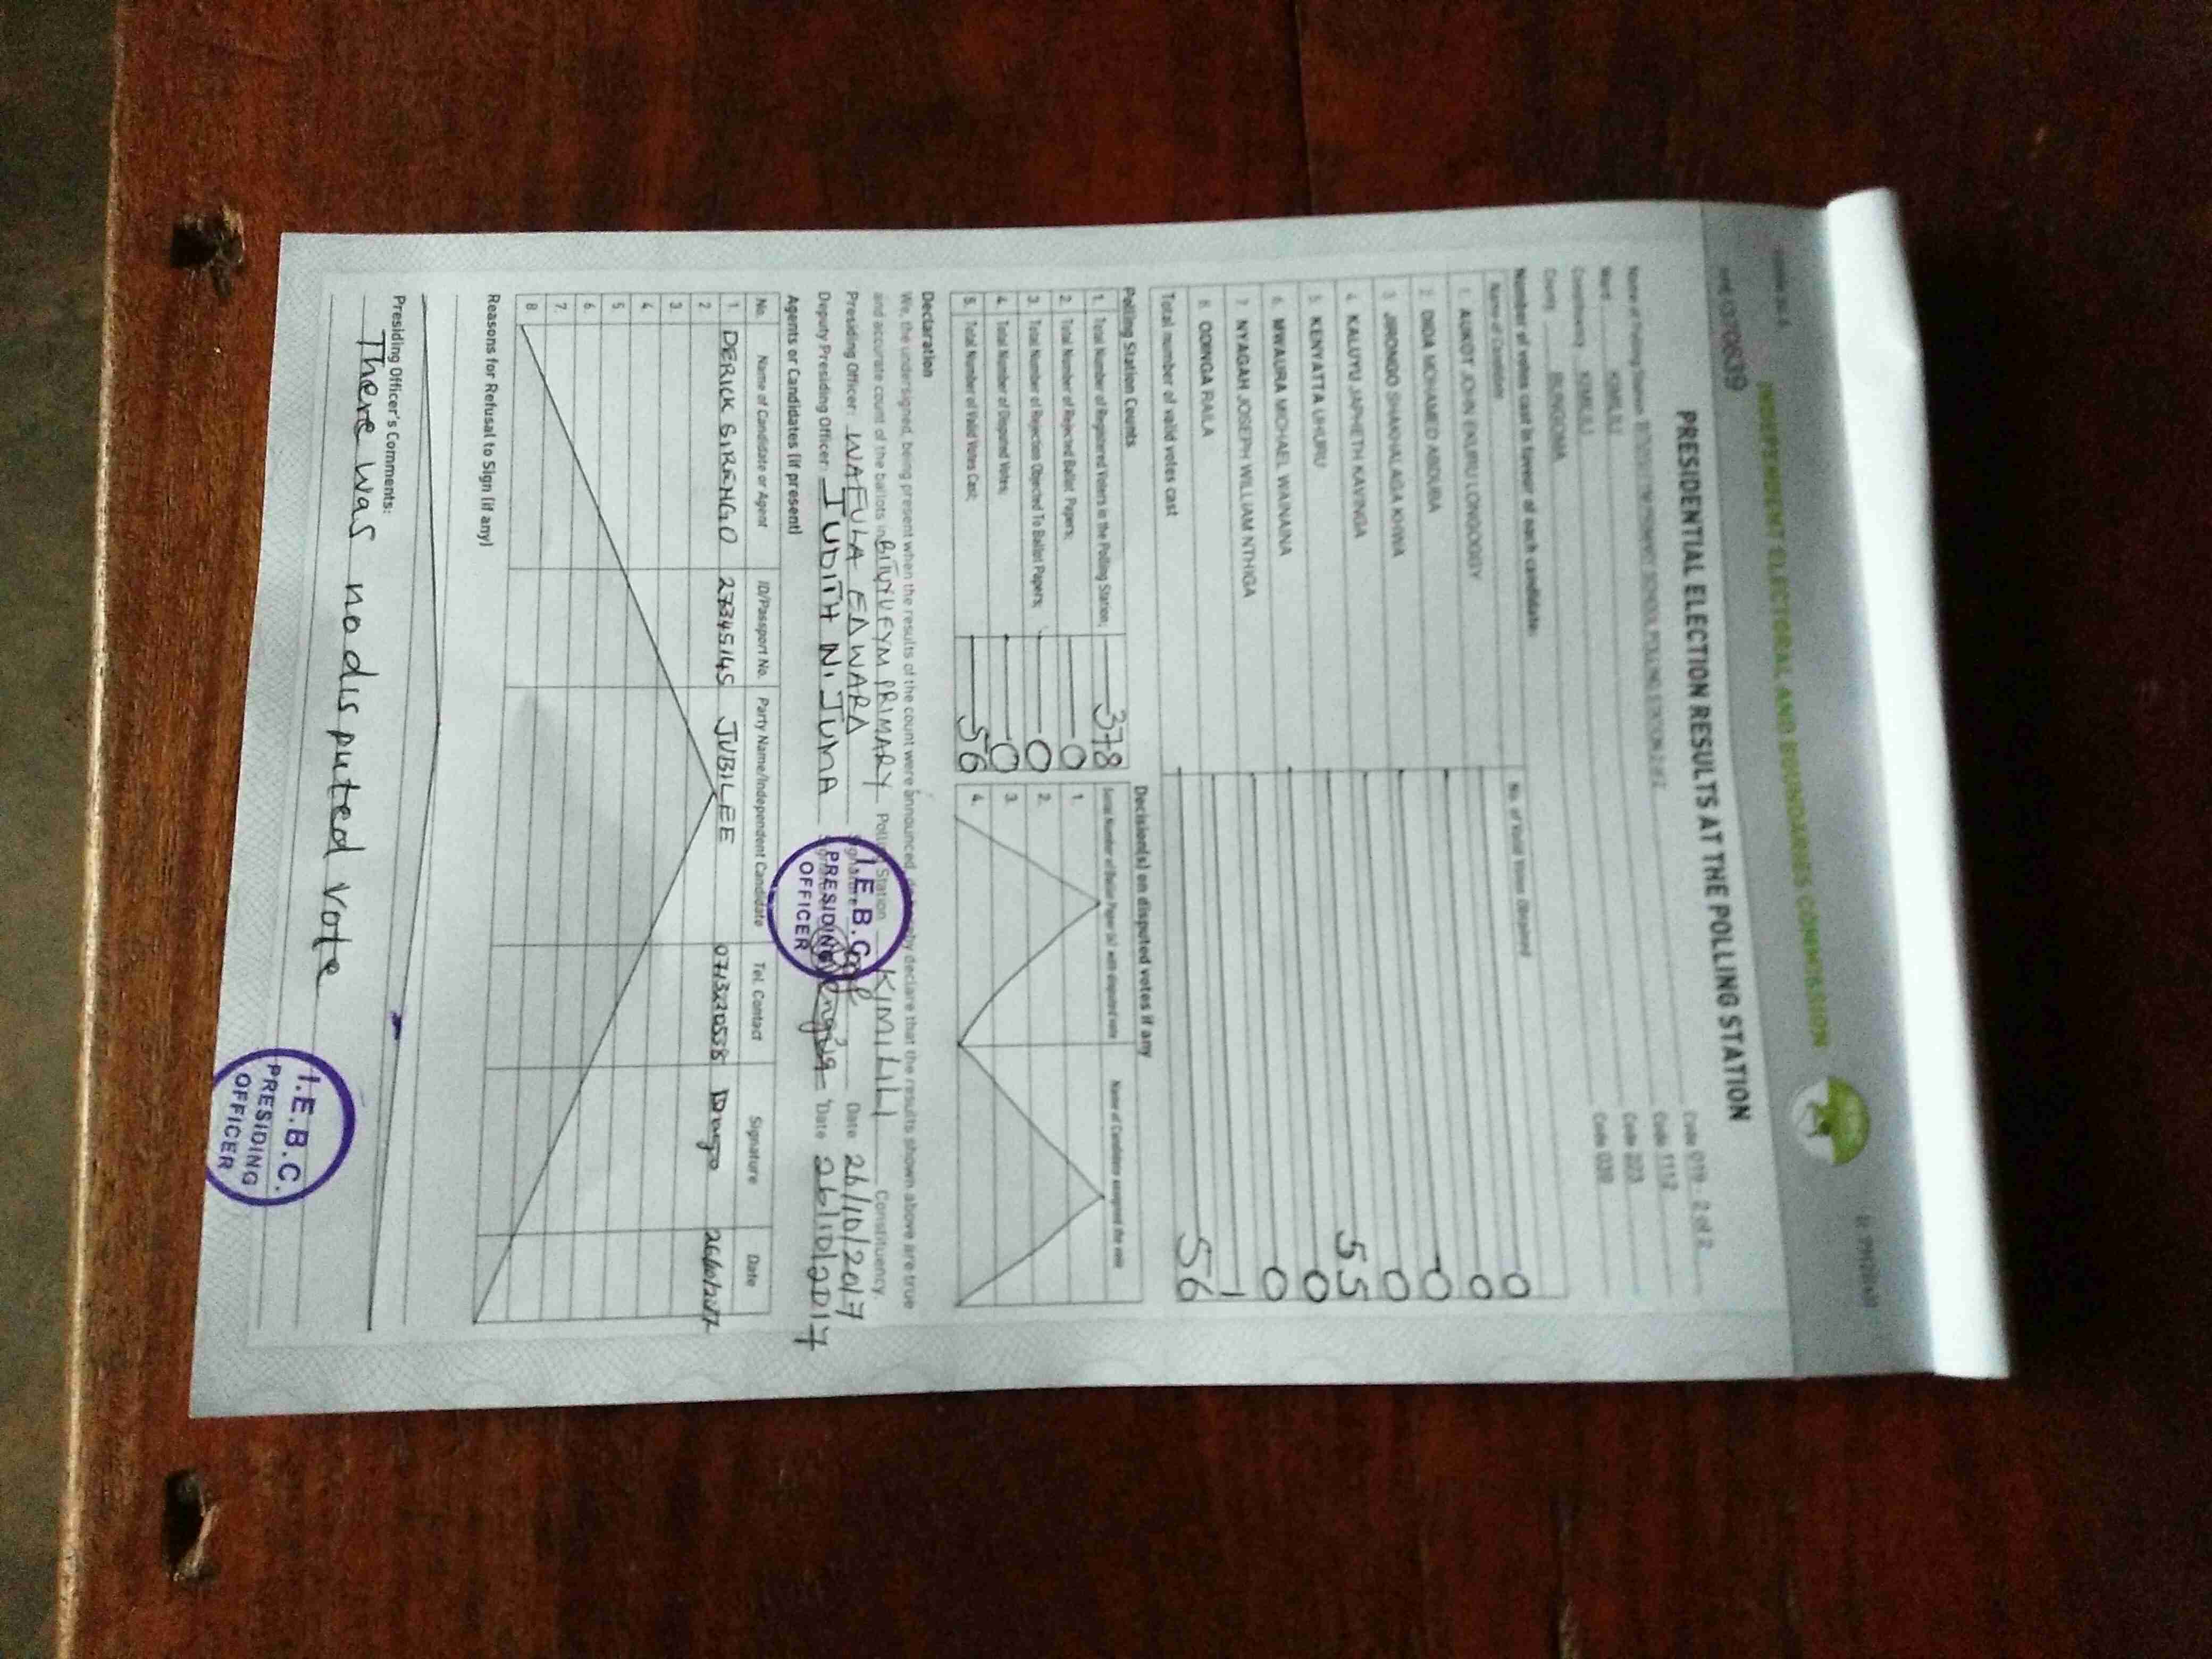 INDEPENDENT ELECTORAL AND BOUNDARIES COMMISSION
PRESIDENTIAL ELECTION RESULTS AT THE POLLING STATION
Name of Polling Station PRIMARY SCHOOL POLLING STATION 2 of 2 Code 019 - 2 of 2
Ward KIMILILI Code 1112
Constituency KIMILILI Code 223
County BUNGOMA Code 039
Number of votes cast in favour of each candidate:
Name of Candidate No. of Valid Votes Obtained
1. AUKOT JOHN EKURU LONGOGGY 0
2. DIDA MOHAMED ABDUBA 0
3. JIRONGO SHAKHALAGA KHWA 0
4. KALUYU JAPHETH KAVINGA 0
5. KENYATTA UHURU 55
6. MWAURA MICHAEL WAINAINA 0
7. NYAGAH JOSEPH WILLIAM NTHIGA 0
8. ODINGA RAILA 1
Total number of valid votes cast 56
Polling Station Counts
1. Total Number of Registered Voters in the Polling Station; 378
2. Total Number of Rejected Ballot Papers; 0
3. Total Number of Rejection Objected To Ballot Papers; 0
4. Total Number of Disputed Votes; 0
5. Total Number of Valid Votes Cast; 56
Decision(s) on disputed votes if any
Serial Number of Ballot Paper (s) with disputed vote Name of Candidate assigned the vote
1.
2.
3.
4.
Declaration
We, the undersigned, being present when the results of the count were announced, do hereby declare that the results shown above are true
and accurate count of the ballots in BITUYU FYM PRIMARY Polling Station KIMILILI Constituency.
Presiding Officer: WAFULA EDWARD Signature Date 26/10/2017
Deputy Presiding Officer: JUDITH N. JUMA Signature Date 26/10/2017
I.E.B.C.
PRESIDING
OFFICER
Agents or Candidates (if present)
No. Name of Candidate or Agent ID/Passport No. Party Name/Independent Candidate Tel. Contact Signature Date
1. DERICK SIRENGO 27345145 JUBILEE 26/10/2017
2
3.
4
5
6
7.
8
Reasons for Refusal to Sign (if any)
Presiding Officer's Comments:
There was no disputed vote
I.E.B.C.
PRESIDING
OFFICER